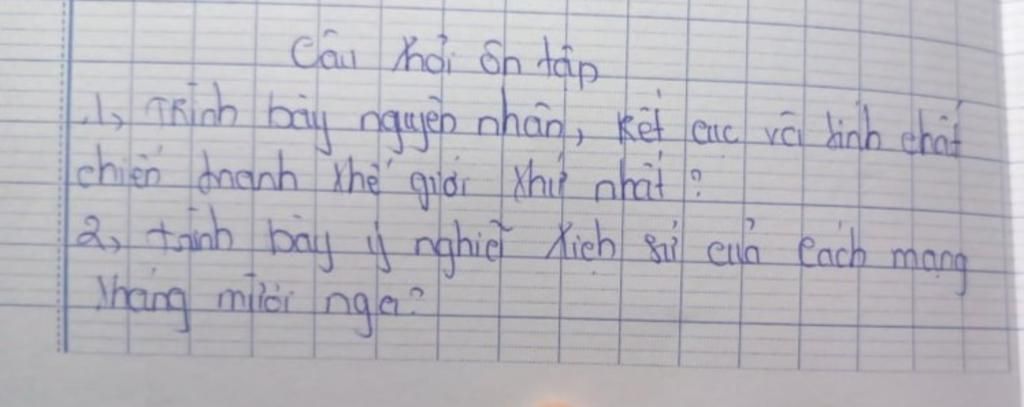 Câu hỏi ôn tập
1, Trình bày nguyên nhân, kết cục và tính chất
chiến tranh thế giới thứ nhất?
2, trình bày ý nghĩa lịch sử của cách mạng
tháng mười nga?